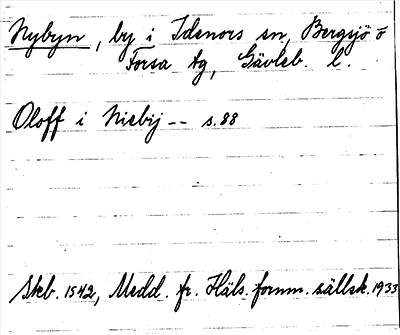 Nybyn, by i Idenors sn, Bergsjö o
Forsa tg, Gävleb. l.
Oloff i Nieby -- s. 88
Skb. 1542, Medd. fr. Häls. fornm. sällsk. 1933